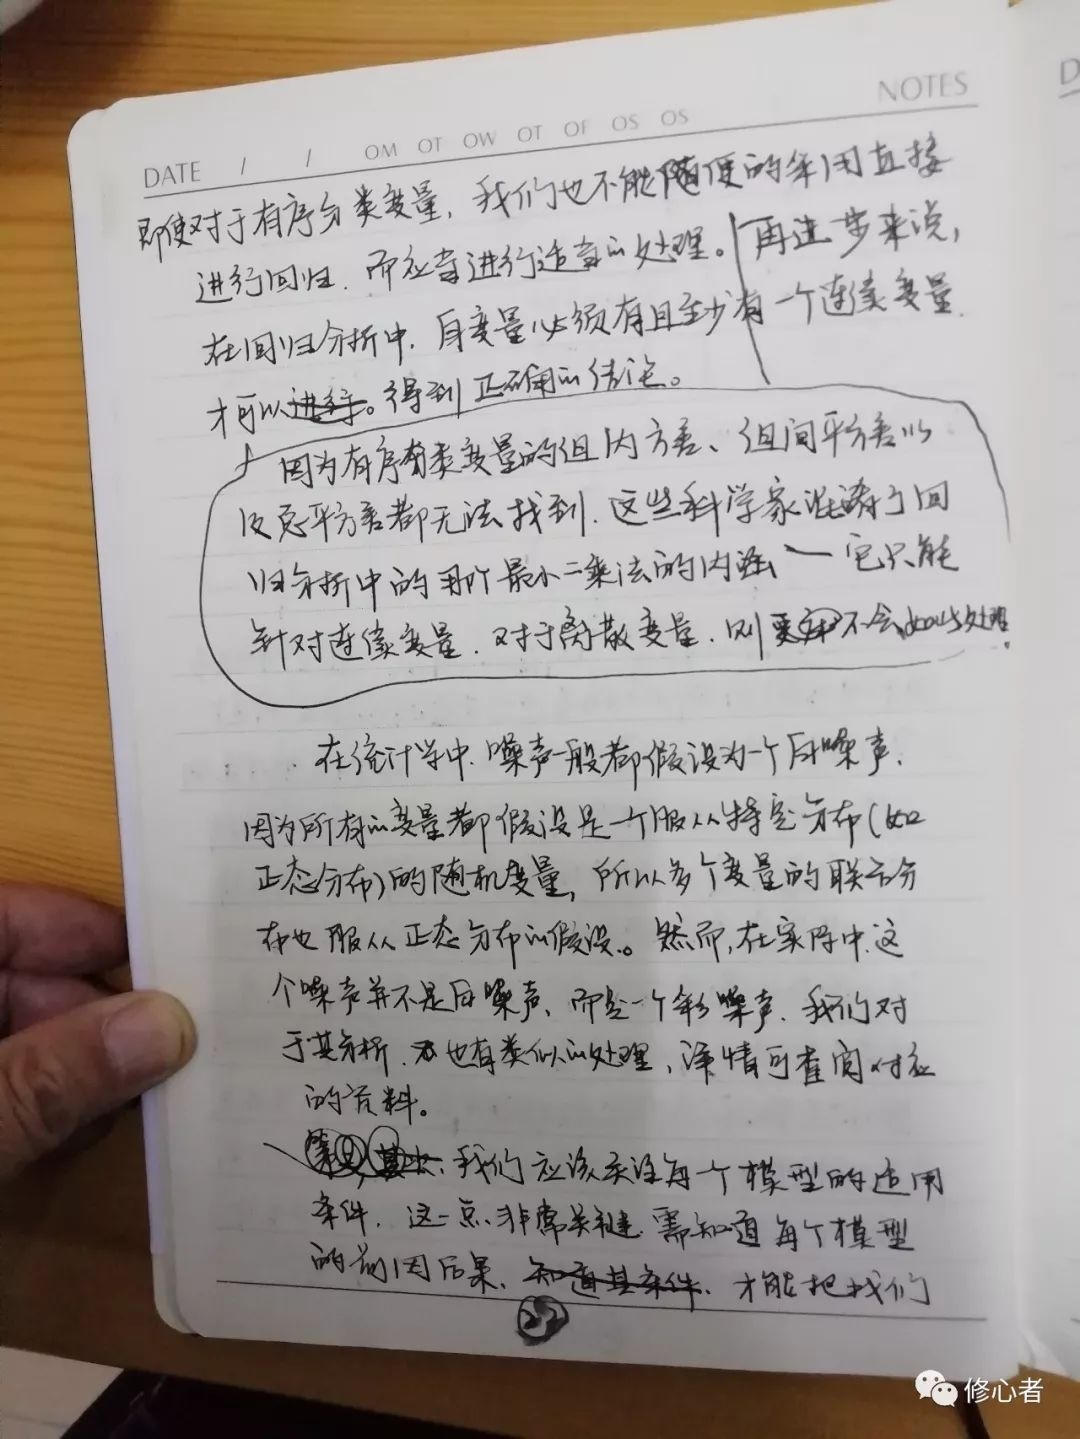 NOTES
DATE / / OM OT OW OT OF OS OS
即使对于有序分类变量，我们也不能随便的采用直接
进行回归，而应当进行适当的处理。再进步来说，
在回归分析中，自变量必须有且至少有一个连续变量，
才可以进行。得到正确的结论。
因为有序分类变量的组内方差、组间平方差以
及总平方差都无法找到，这些科学家混淆了回
归分析中的用的最小二乘法的内涵——它只能
针对连续变量，对于离散变量，则更不会处理。
在统计学中，噪声一般都假设为一个白噪声，
因为所有的变量都假设是一个服从特定分布（如
正态分布）的随机变量，所以多个变量的联合分
布也服从正态分布的假设。然而，在实际中，这
个噪声并不是白噪声，而是一个彩噪声，我们对
于其分析，也有类似的处理，详情可查阅对应
的资料。
我们应该关注每个模型的适用
条件，这一点非常关键，需知道每个模型
的前因后果，知道其条件，才能把我们
22
修心者